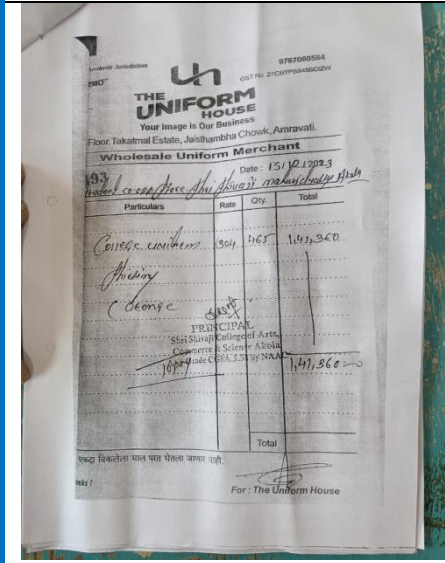 Amravati Jurisdiction
9767060564
MEMO
GST No. 27CBTPS9456C1ZW
Un
THE
UNIFORM
HOUSE
Your Image is Our Business
Floor, Takatmal Estate, Jaisthambha Chowk, Amravati.
Wholesale Uniform Merchant
193
Date : 15/12/2023
Student co-opp Store Shri Shivaji mahavidyalay Akola
Particulars Rate Qty. Total
College uniform 304 465 1,41,360
PRINCIPAL
Shri Shivaji College of Arts,
Commerce & Science Akola
by NAAC
1,41,360=00
Total
एकदा विकलेला माल परत घेतला जाणार नाही.
For : The Uniform House